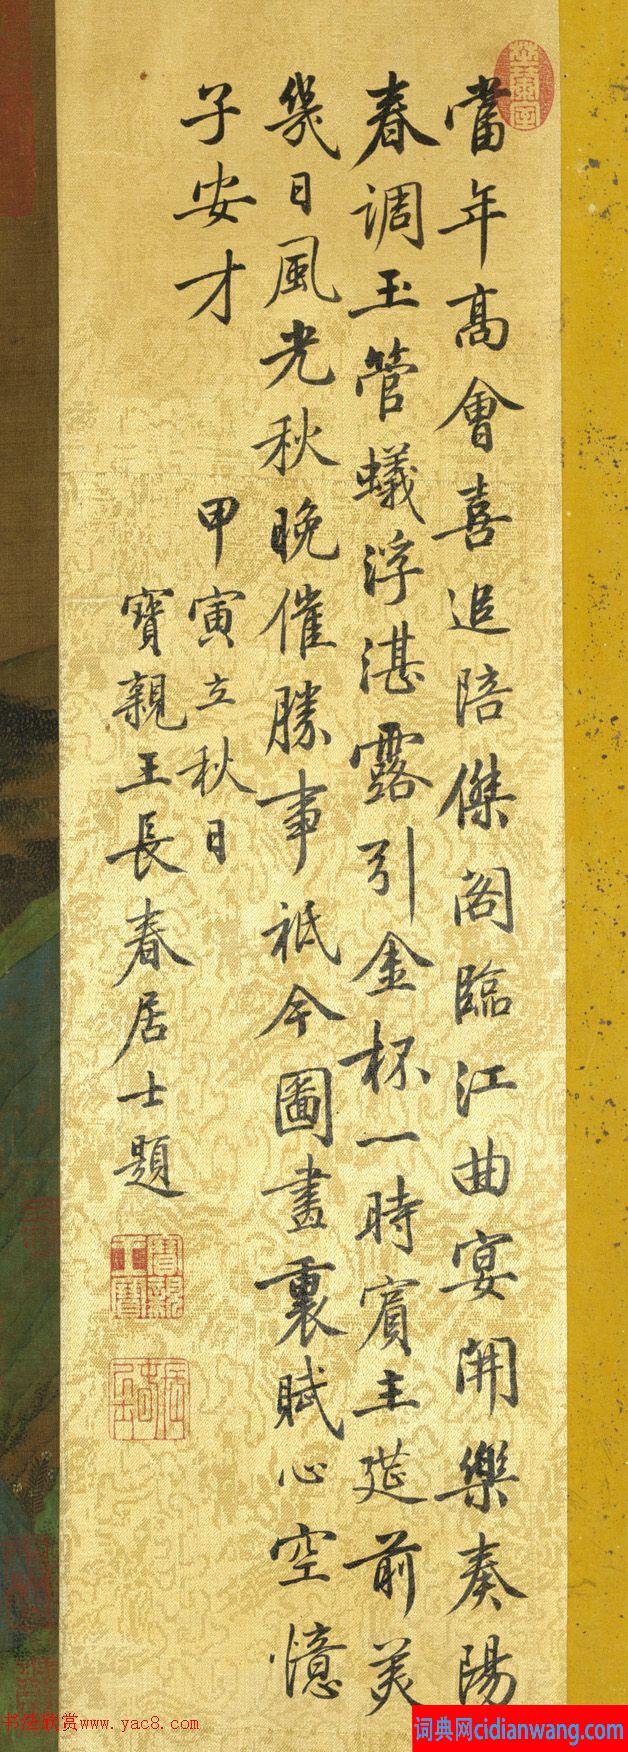 當年高會喜追陪傑閣臨江曲宴開樂奏陽
春調玉管蟻浮湛露引金杯一時賓主筵前美
幾日風光秋晚催勝事祗今圖畫裏賦心空憶
子安才
甲寅立秋日
寶親王長春居士題
书法欣赏www.yac8.com
词典网cidianwang.com